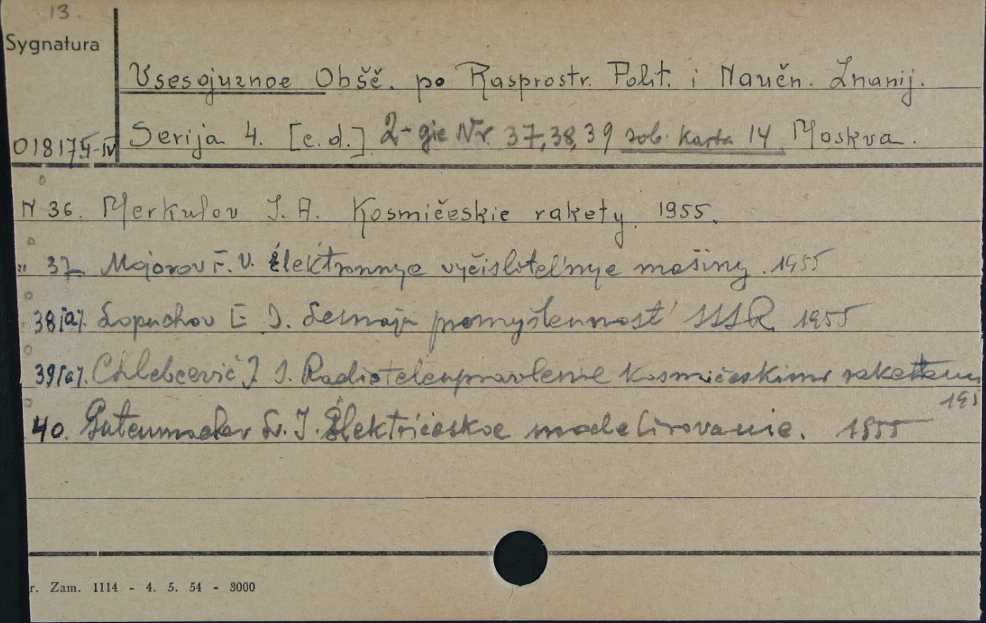 13.
Sygnatura
Vsesojuznoe Obšč. po Rasprostr. Polit. i Naučn. Znanij.
018175-IV Serija 4. [c.d.] 2-gie Nr 37, 38, 39 zob. karta 14 Moskva.
N 36. Merkulov I. A. Kosmičeskie rakety. 1955.
„ 37 Majorov F. V. Élektronnye vyčislitel'nye mašiny. 1955
38[a]. Lopuchov E. I. Lesnaja promyšlennost' SSSR 1955
39[a]. Chlebcevič J. S. Radioteleupravlenie kosmičeskimi raketami
195
40. Gutenmacher L. I. Élektričeskoe modelirovanie. 1955
r. Zam. 1114 - 4. 5. 54 - 3000